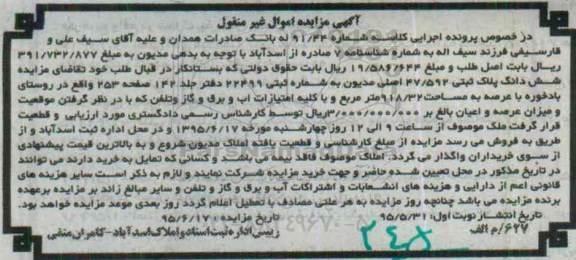 آگهی مزایده اموال غیر منقول
در خصوص پرونده اجرایی کلاسه شماره ۹۱/۴۴ له بانک صادرات همدان و علیه آقای سیف علی و
فارسیفی فرزند سیف اله به شماره شناسنامه ۷ صادره از اسدآباد با توجه به بدهی مدیون به مبلغ ۳۹۱/۷۳۲/۸۷۷
ریال بابت اصل طلب و مبلغ ۱۹/۵۸۶/۶۴۴ ریال بابت حقوق دولتی که بستانکار در قبال طلب خود تقاضای مزایده
شش دانگ پلاک ثبتی ۴۷/۵۹۲ اصلی مدیون به شماره ثبتی ۲۲۴۹۹ دفتر جلد ۱۴۲ صفحه ۲۵۳ واقع در روستای
بادخوره با عرصه به مساحت ۴۹۸/۳۲ متر مربع و با کلیه امتیازات آب و برق و گاز وتلفن که با در نظر گرفتن موقعیت
و میزان عرصه و اعیان بالغ بر ۳/۰۰۰/۰۰۰/۰۰۰ ریال توسط کارشناس رسمی دادگستری مورد ارزیابی و قطعیت
قرار گرفت ملک موصوف از ساعت ۹ الی ۱۲ روز چهارشنبه مورخه ۱۳۹۵/۶/۱۷ و در محل اداره ثبت اسدآباد و از
طریق به فروش می رسد مزایده از مبلغ کارشناسی و قطعیت یافته املاک مدیون شروع و به بالاترین قیمت پیشنهادی
از سوی خریداران واگذار می گردد. املاک موصوف فاقد بیمه می باشند و کسانی که تمایل به خرید دارند می توانند
در تاریخ مذکور در محل تعیین شده حاضر و جهت خرید مزایده شرکت نمایند و لازم به ذکر است سایر هزینه های
قانونی اعم از دارایی و هزینه های انشعابات و اشتراکات آب و برق و گاز و تلفن و سایر مبالغ زائد بر مزایده برعهده
برنده مزایده می باشد چنانچه روز مزایده به هر علتی مصادف با تعطیل اعلام گردد روز بعدی موعد مزایده خواهد بود.
تاریخ انتشار نوبت اول: ۹۵/۵/۳۱
تاریخ مزایده: ۹۵/۶/۱۷
۶۲۷/م الف
رییس اداره ثبت اسناد و املاک اسدآباد - کامران متقی